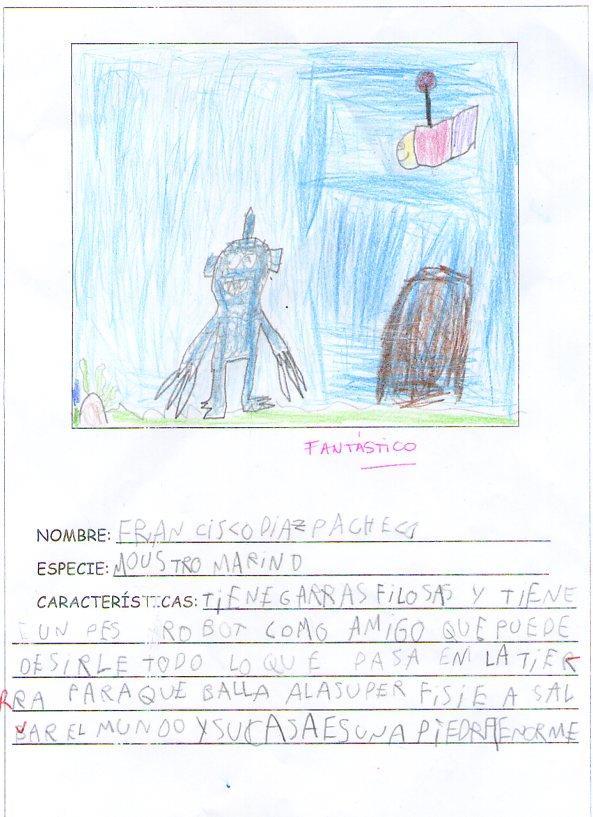 FANTÁSTICO
NOMBRE: FRANCISCO DIAZ PACHECO
ESPECIE: MOUSTRO MARINO
CARACTERÍSTICAS: TIENE GARRAS FILOSAS Y TIENE
UN PES ROBOT COMO AMIGO QUE PUEDE
DESIRLE TODO LO QUE PASA EN LA TIER
RRA PARA QUE BALLA A LA SUPERFISIE A SAL
VAR EL MUNDO Y SU CASA ES UNA PIEDRA ENORME